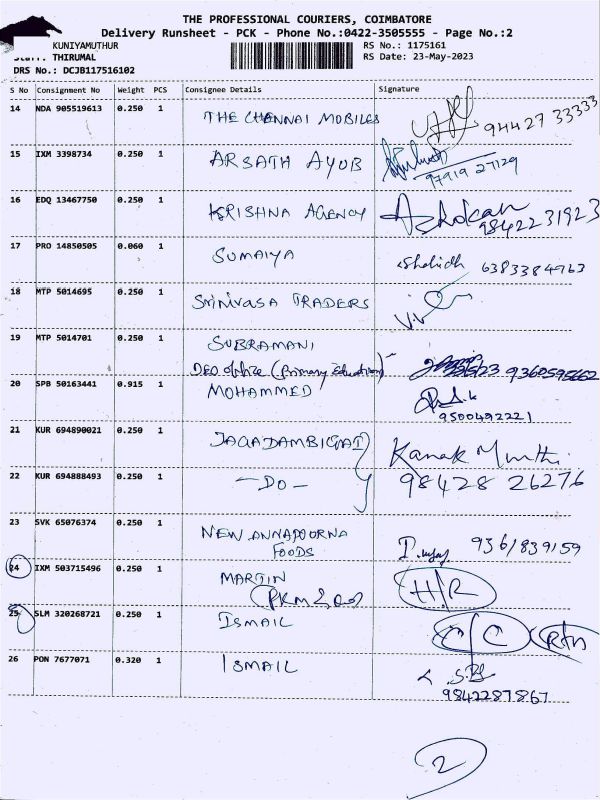 THE PROFESSIONAL COURIERS, COIMBATORE
Delivery Runsheet - PCK - Phone No.:0422-3505555 - Page No.:2
KUNIYAMUTHUR
RS No.: 1175161
Staff: THIRUMAL
RS Date: 23-May-2023
DRS No.: DCJB117516102
S No Consignment No Weight PCS Consignee Details Signature
14 NDA 905519613 0.250 1 THE CHENNAI MOBILES 94427 33333
15 IXM 3398734 0.250 1 ARSATH AYUB 97919 27129
16 EDQ 13467750 0.250 1 KRISHNA AGENCY Ashokan 9842231923
17 PRO 14850505 0.060 1 SUMAIYA Shahidh 6383384763
18 MTP 5014695 0.250 1 SRINIVASA TRADERS V.V
19 MTP 5014701 0.250 1 SUBRAMANI
DEO office (Primary Education) 9360595662
20 SPB 50163441 0.915 1 MOHAMMED
9500492221
21 KUR 694890021 0.250 1 JAGADAMBIGAI Kanak Murthi
22 KUR 694888493 0.250 1 -DO- 98428 26276
23 SVK 65076374 0.250 1 NEW ANNAPOORNA
FOODS 9361839159
24 IXM 503715496 0.250 1 MARTIN H/R
25 SLM 320268721 0.250 1 ISMAIL C/C Rtn
26 PON 7677071 0.320 1 ISMAIL
9842287867
2